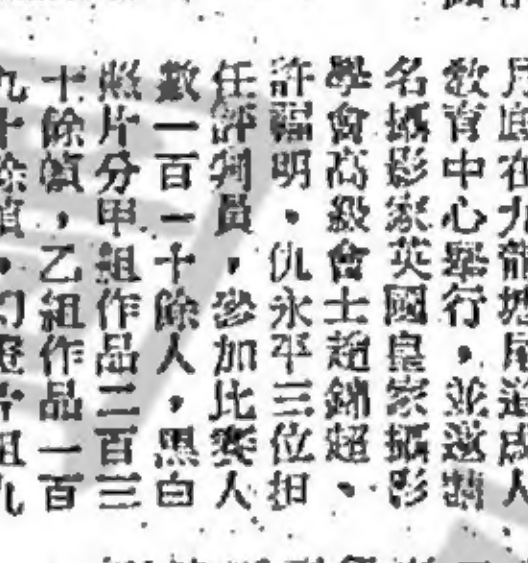 月底在九龍塘尾道成人
教育中心舉行，並邀請
名攝影家英國皇家攝影
學會高級會士趙錦超、
許福明，仇永平三位担
任評判員，參加比賽人
數一百一十餘人，黑白
照片分甲組作品二百三
十餘幀，乙組作品一百
九十餘幀，幻燈片組九